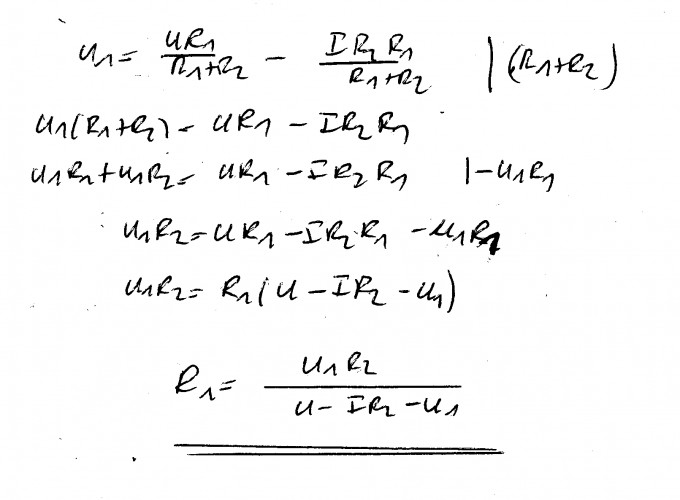 U₁ = UR₁/(R₁+R₂) - IR₂R₁/(R₁+R₂) | (R₁+R₂)
U₁(R₁+R₂) = UR₁ - IR₂R₁
U₁R₁+U₁R₂ = UR₁ - IR₂R₁ | -U₁R₁
U₁R₂ = UR₁ - IR₂R₁ - U₁R₁
U₁R₂ = R₁(U - IR₂ - U₁)
R₁ = U₁R₂/(U - IR₂ - U₁)